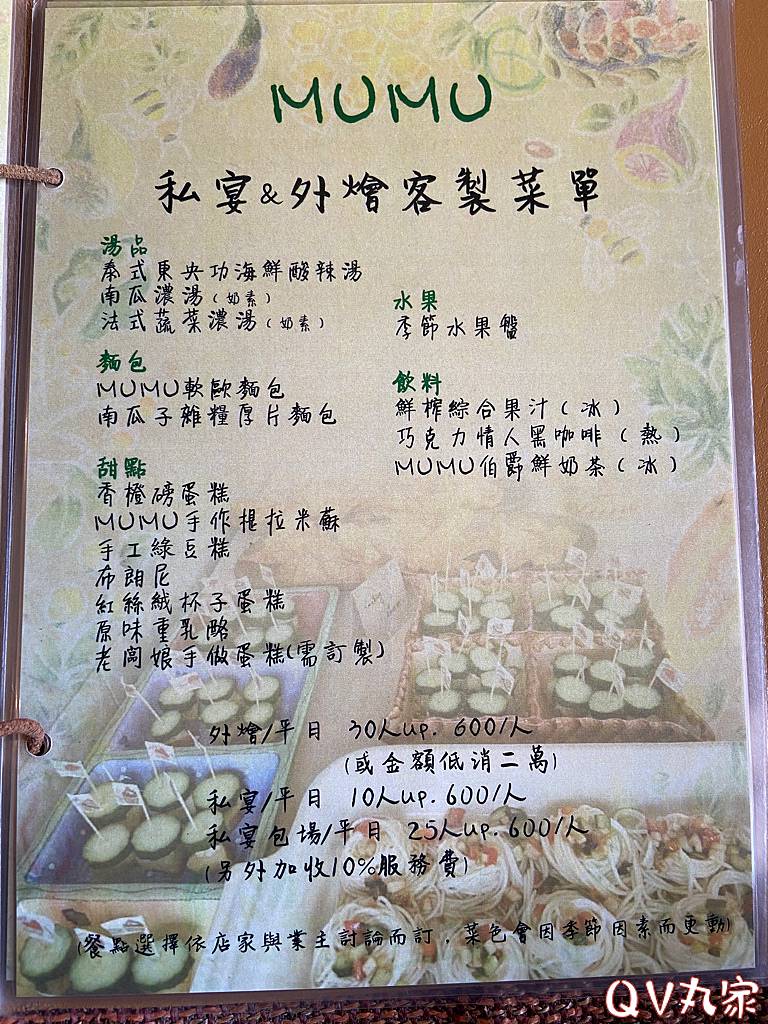 MUMU
私宴&外燴客製菜單
湯品
泰式東央功海鮮酸辣湯
南瓜濃湯(奶素)
法式蔬菜濃湯(奶素)
麵包
MUMU軟歐麵包
南瓜子雜糧厚片麵包
甜點
香橙磅蛋糕
MUMU手作提拉米蘇
手工綠豆糕
布朗尼
紅絲絨杯子蛋糕
原味重乳酪
老闆娘手做蛋糕(需訂製)
水果
季節水果盤
飲料
鮮榨綜合果汁(冰)
巧克力情人黑咖啡(熱)
MUMU伯爵鮮奶茶(冰)
外燴/平日 30人up. 600/人
(或金額低消二萬)
私宴/平日 10人up. 600/人
私宴包場/平日 25人up. 600/人
(另外加收10%服務費)
(餐點選擇依店家與業主討論而訂,菜色會因季節因素而更動)
QV丸家